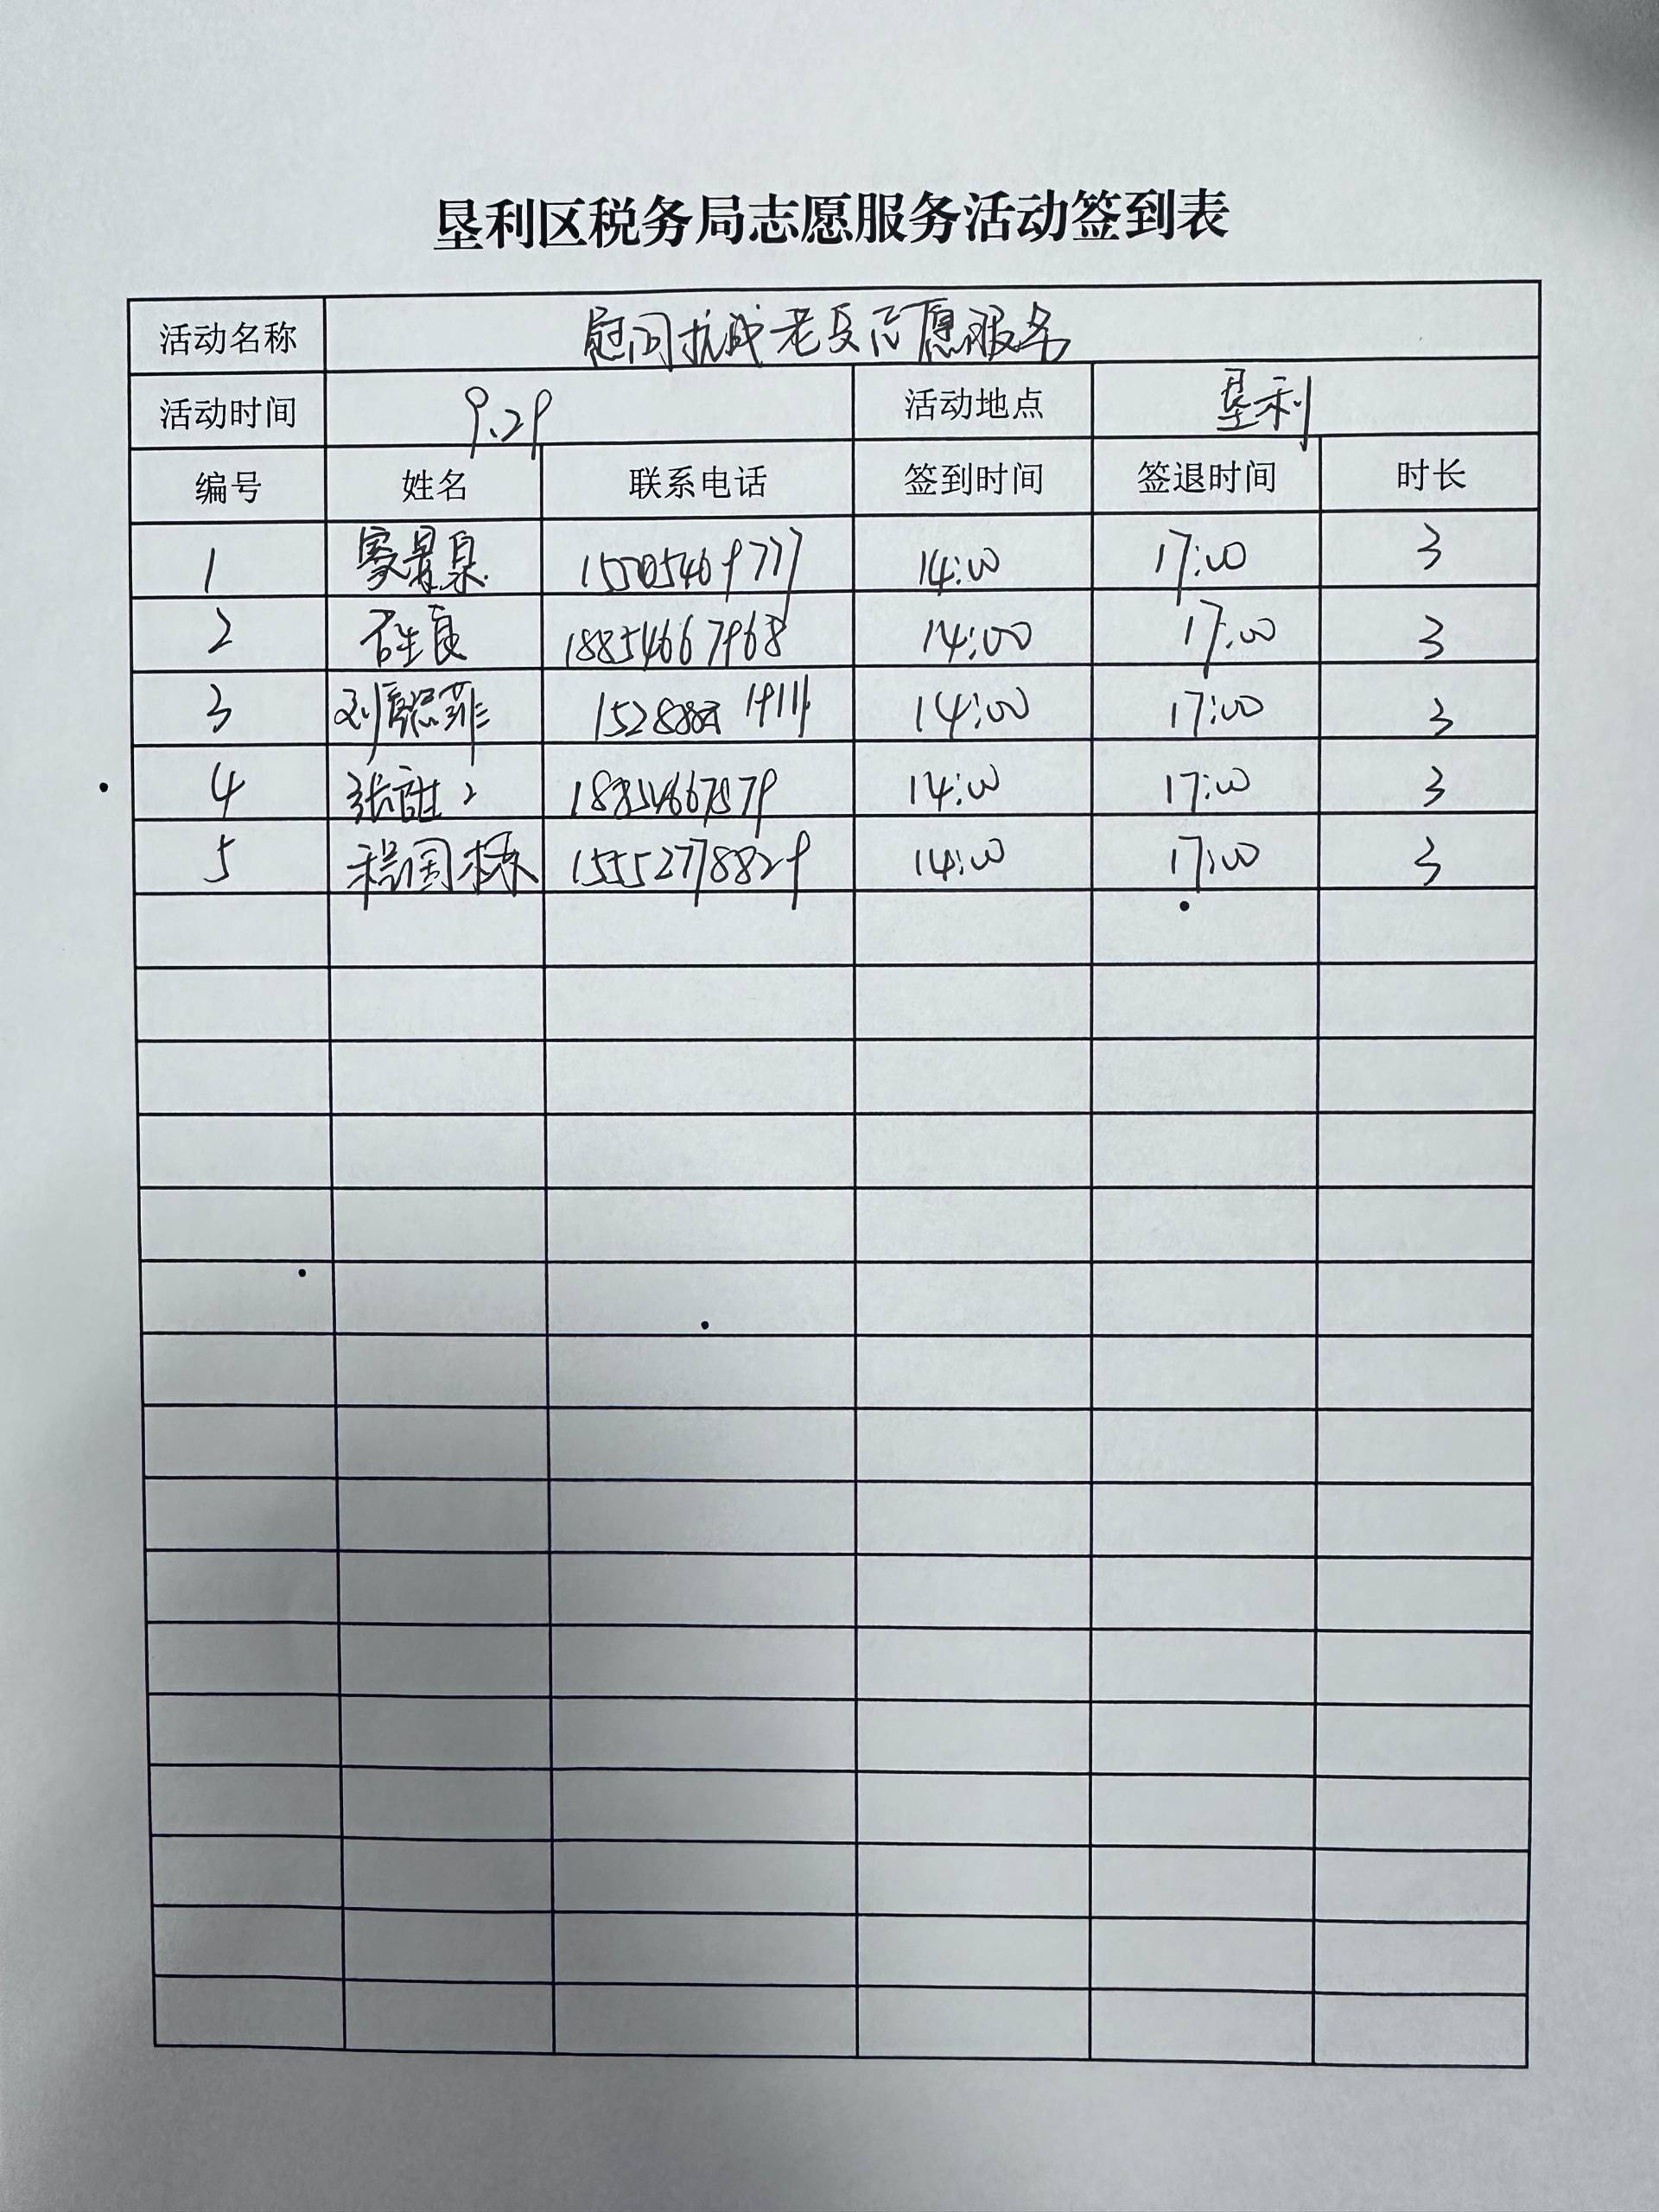 垦利区税务局志愿服务活动签到表
活动名称 慰问抗战老兵志愿服务
活动时间 9.29 活动地点 垦利
编号 姓名 联系电话 签到时间 签退时间 时长
1 14:00 17:00 3
2 18854667968 14:00 17:00 3
3 14:00 17:00 3
4 14:00 17:00 3
5 程国栋 15552778829 14:00 17:00 3